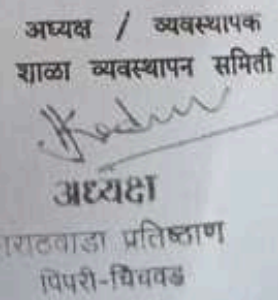 अध्यक्ष / व्यवस्थापक
शाळा व्यवस्थापन समिती
अध्यक्ष
मराठवाडा प्रतिष्ठाण
पिंपरी-चिंचवड